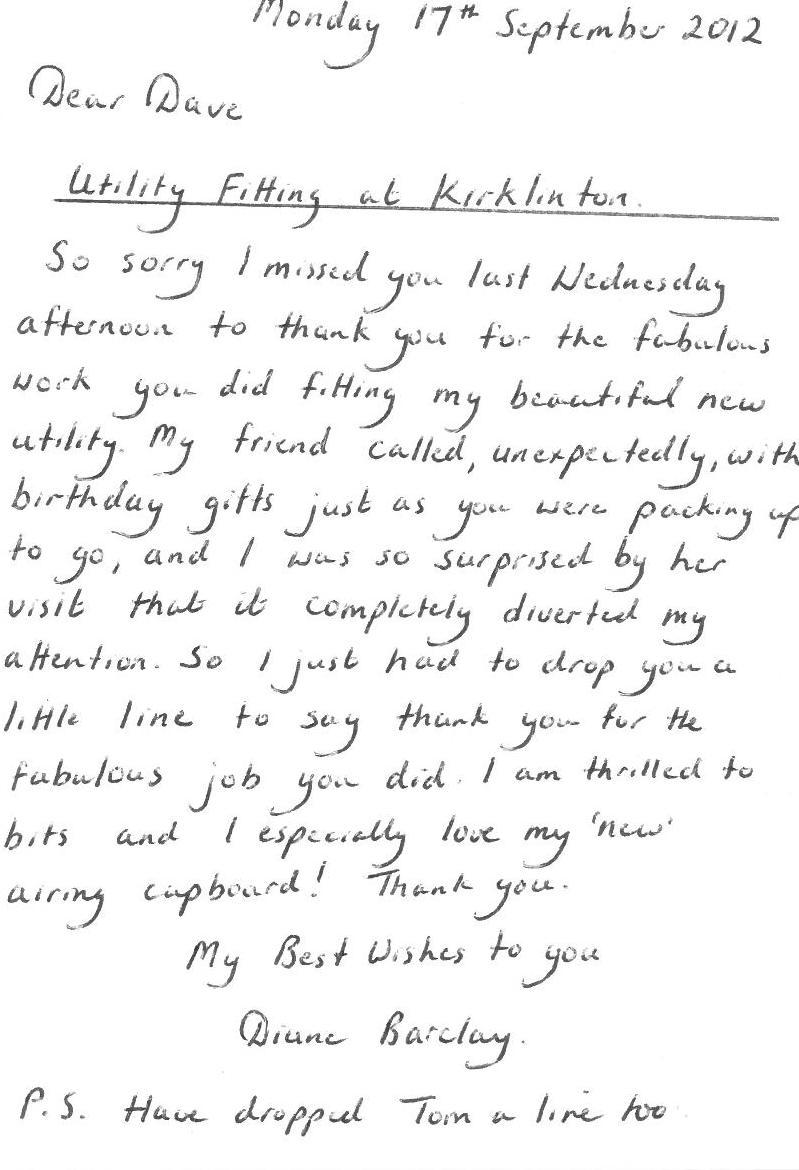 Monday 17th September 2012
Dear Dave
Utility Fitting at Kirklinton.
So sorry I missed you last Wednesday
afternoon to thank you for the fabulous
work you did fitting my beautiful new
utility. My friend called, unexpectedly, with
birthday gifts just as you were packing up
to go, and I was so surprised by her
visit that it completely diverted my
attention. So I just had to drop you a
little line to say thank you for the
fabulous job you did. I am thrilled to
bits and I especially love my 'new'
airing cupboard! Thank you.
My Best Wishes to you
Diane Barclay.
P.S. Have dropped Tom a line too